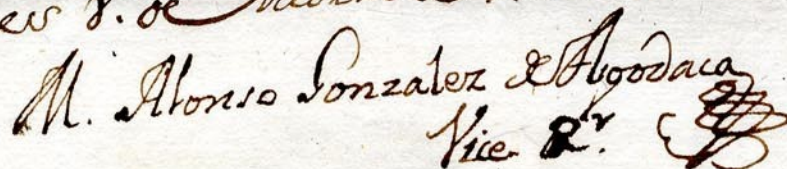 8. de
M. Alonso Gonzalez de Apodaca
Vice R.r